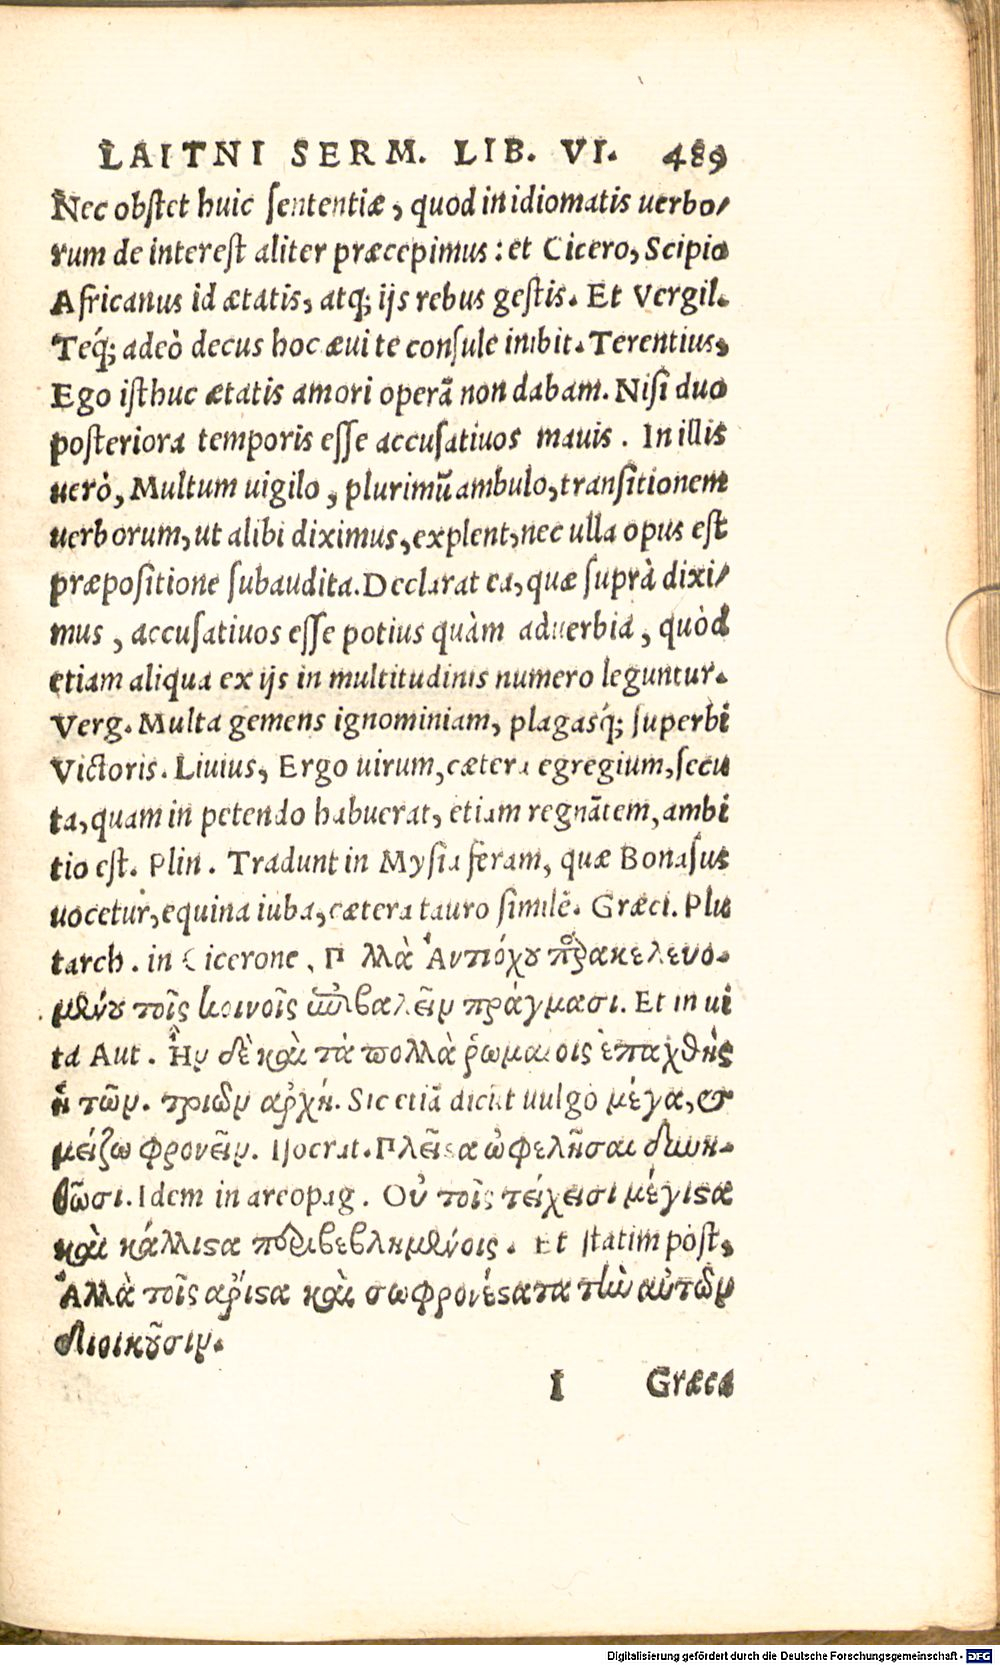 LAITNI SERM. LIB. VI. 489
Nec obstet huic sententiæ, quod in idiomatis uerbo/
rum de interest aliter præcepimus: et Cicero, Scipio
Africanus id ætatis, atq; ijs rebus gestis. Et Vergil.
Teq́; adeò decus hoc æui te consule inibit. Terentius,
Ego isthuc ætatis amori operã non dabam. Nisi duo
posteriora temporis esse accusatiuos mauis. In illis
uerò, Multum uigilo, plurimũ ambulo, transitionem
uerborum, ut alibi diximus, explent, nec ulla opus est
præpositione subaudita. Declarat ea, quæ suprà dixi/
mus, accusatiuos esse potius quàm aduerbia, quòd
etiam aliqua ex ijs in multitudinis numero leguntur.
Verg. Multa gemens ignominiam, plagasq́; superbi
Victoris. Liuius, Ergo uirum, cætera egregium, secu
ta, quam in petendo habuerat, etiam regnãtem, ambi
tio est. Plin. Tradunt in Mysia feram, quæ Bonasus
uocetur, equina iuba, cætera tauro similẽ. Græci. Plu
tarch. in Cicerone. Π λλὰ Ἀντιόχου παρακελευο-
μένου τοῖς κοινοῖς ἐπιβαλεῖν πράγμασι. Et in ui
ta Ant. Ἦν δὲ καὶ τὰ πολλὰ ῥωμαίοις ἐπαχθὴς
ἡ τῶν. τριῶν ἀρχή. Sic etiã dicũt uulgo μέγα, et
μείζω φρονεῖν. Isocrat. Πλεῖστα ὠφελῆσαι δυνη-
θῶσι. Idem in areopag. Οὐ τοῖς τείχεσι μέγιστα
καὶ κάλλιστα περιβεβλημένοις. Et statim post,
Ἀλλὰ τοῖς ἄριστα καὶ σωφρονέστατα τὴν αὐτῶν
διοικοῦσιν.
I Græca
Digitalisierung gefördert durch die Deutsche Forschungsgemeinschaft - DFG